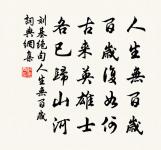 人生無百歲
百歲復如何
古來英雄士
各已歸山河
劉基絕句人生無百歲
詞典網集